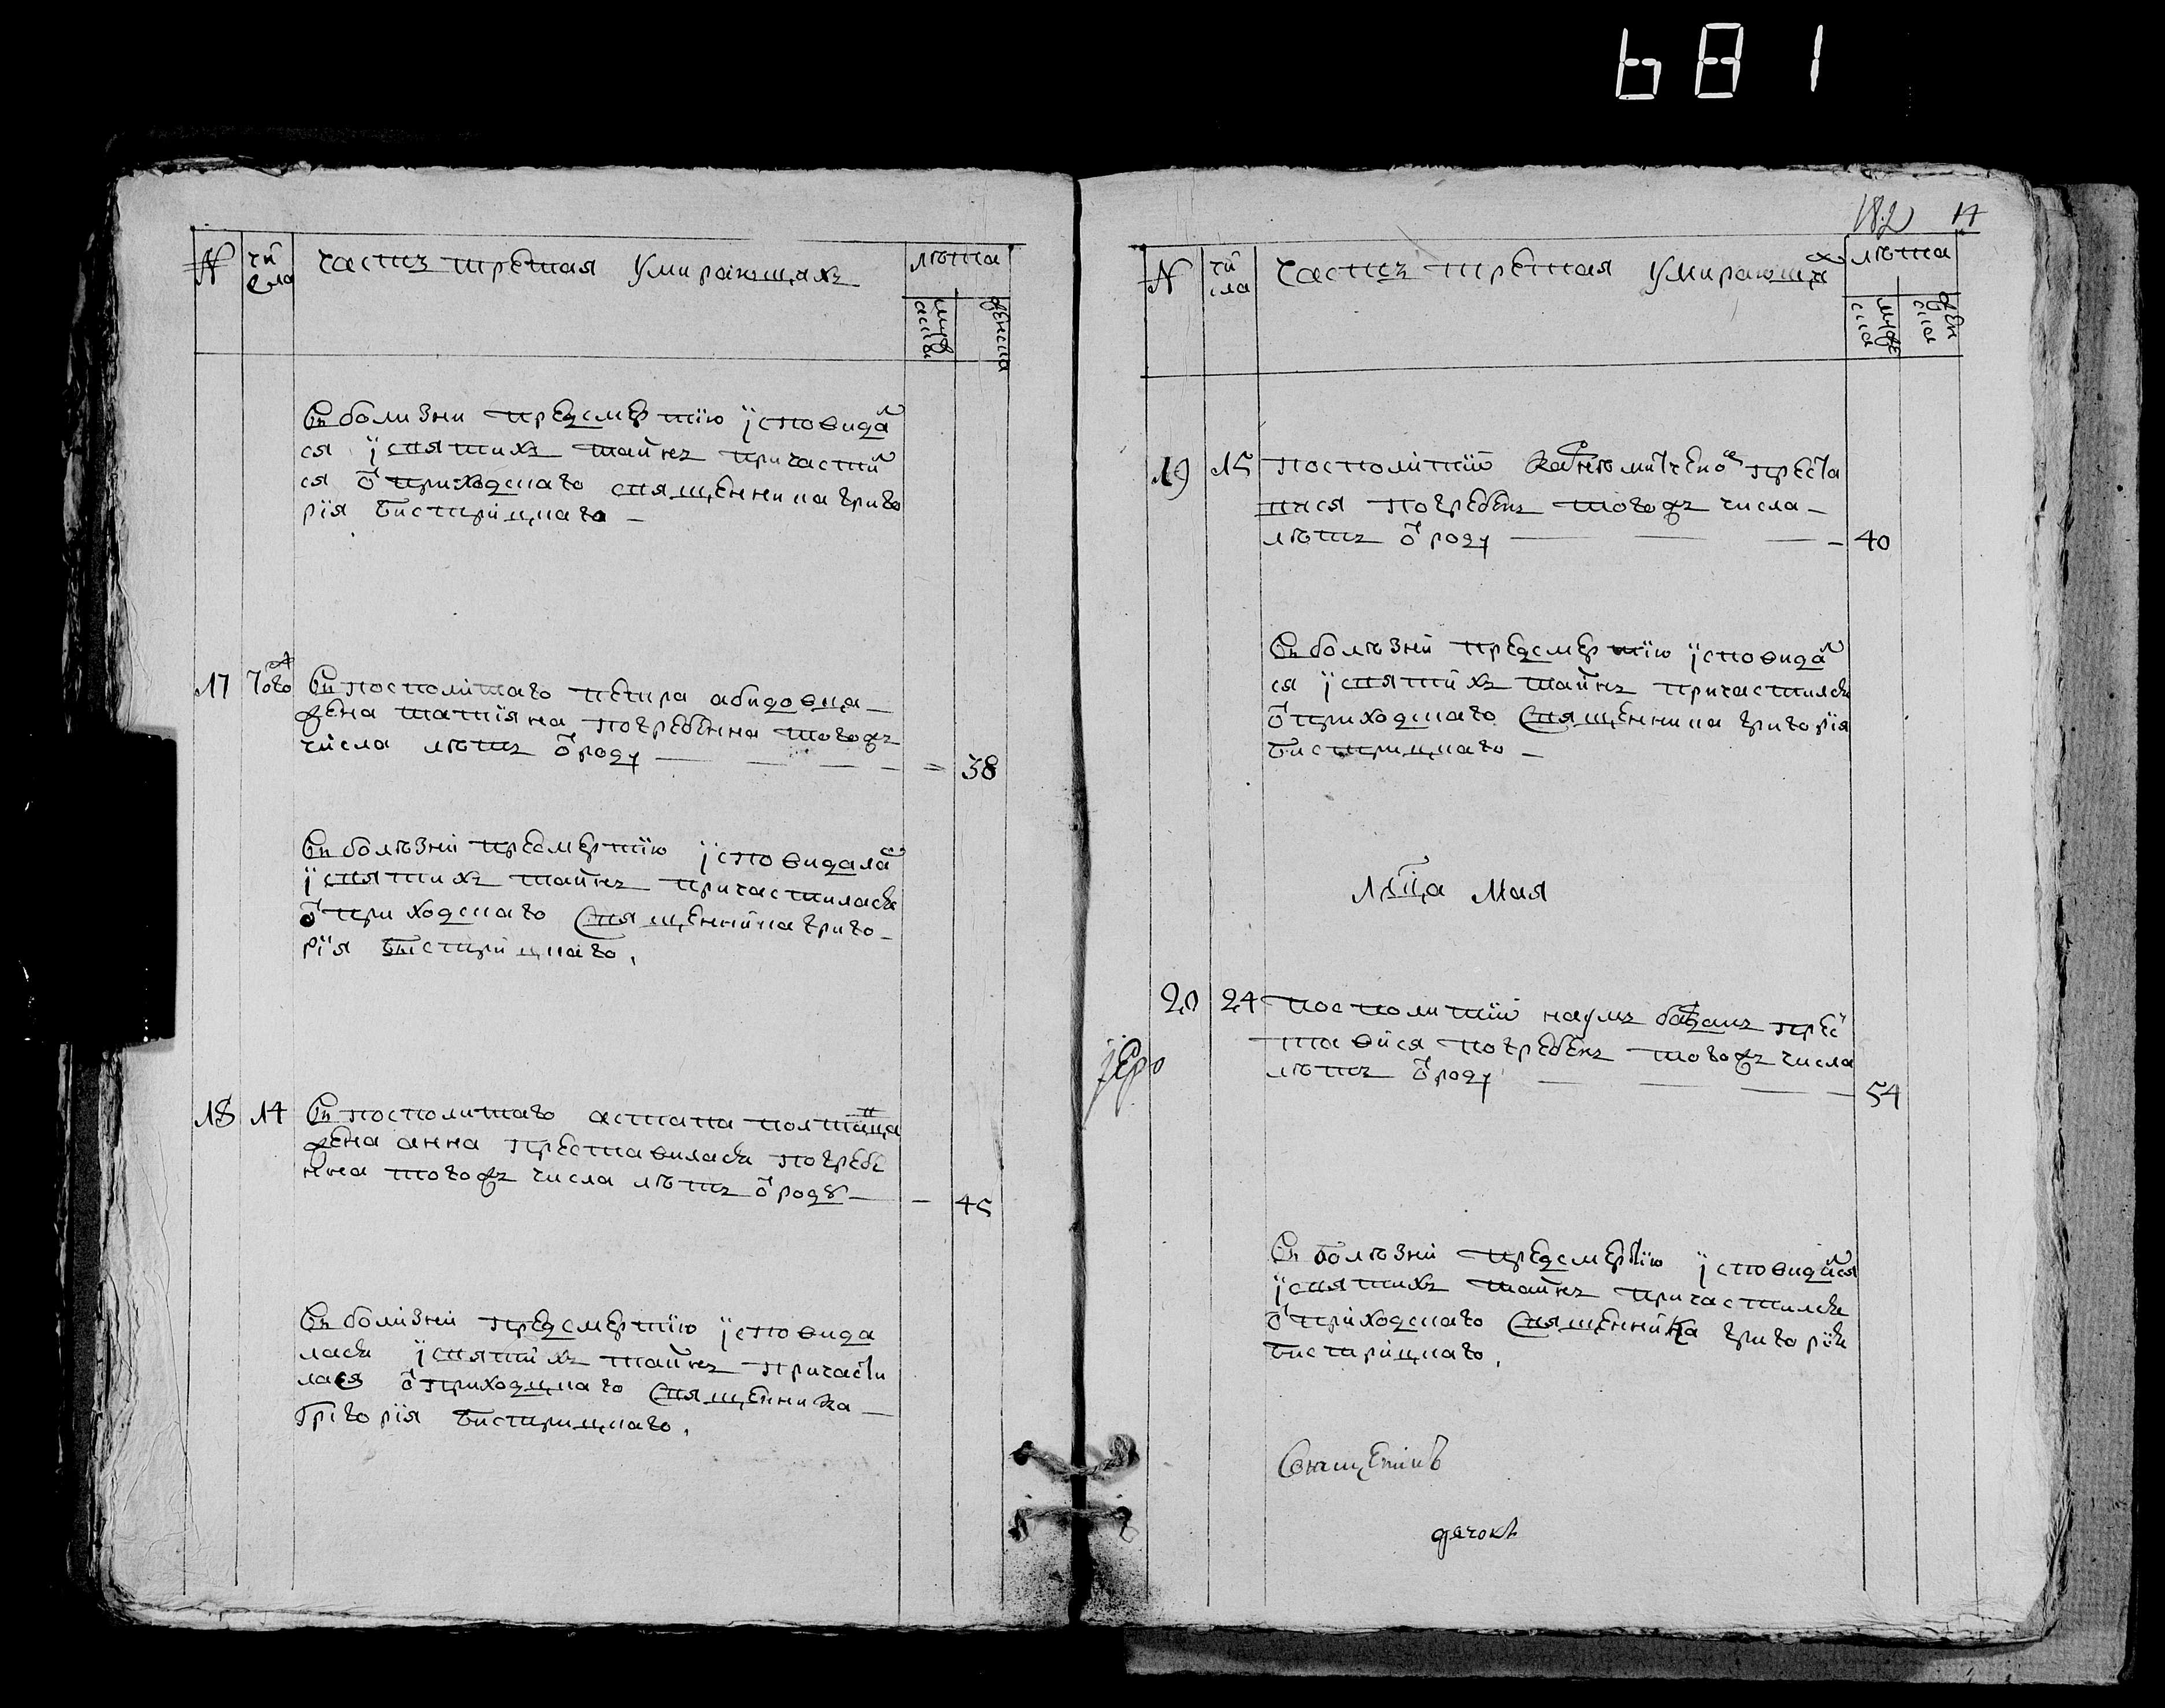 681
№
чи
сла
часть третая умирающихъ
лѣта
мужеска
женска
въ болизни предсмертїю їсповидал
ся ї святихъ таинъ причастил
ся ѿ приходскаго священника григо
рїя бистрицкаго –
17 Тогож въ посполитаго петра
жена татїяна погребенна тогожъ
числа лѣтъ ѿ роду — — — – = 38
въ болѣзни пресмертїю їсповидалас
ї святихъ таинъ причастиласъ
ѿ приходскаго священника григо–
рїя бистрицкаго.
18 14 въ посполитаго астапа
жена анна преставиласъ погребе
нна тогожъ числа лѣтъ ѿ родꙋ — – 45
въ болизни предсмертїю їсповида
ласъ ї святихъ таинъ причасти
лася ѿ приходцкаго священника –
григорїя бистрицкаго.
182 17
№
чи
сла
часть третая умирающих
лѣта
мужеска
женска
19 15 посполитїй преста
вися погребенъ тогожъ числа –
лѣтъ ѿ роду — — — – 40
въ болѣзни предсмертїю їсповидал
ся ї святихъ таинъ причастилсъ
ѿ приходскаго священника григорїя
бистрицкаго –
мсца мая
20 24 посполитїй наумъ прес
тавися погребенъ тогожъ числа
лѣтъ ѿ роду — — — – 54
їеро
въ болѣзни предсмертїю їсповидался
ї святихъ таинъ причастилсъ
ѿ приходскаго священника григорїя
бистрицкаго.
дячокъ